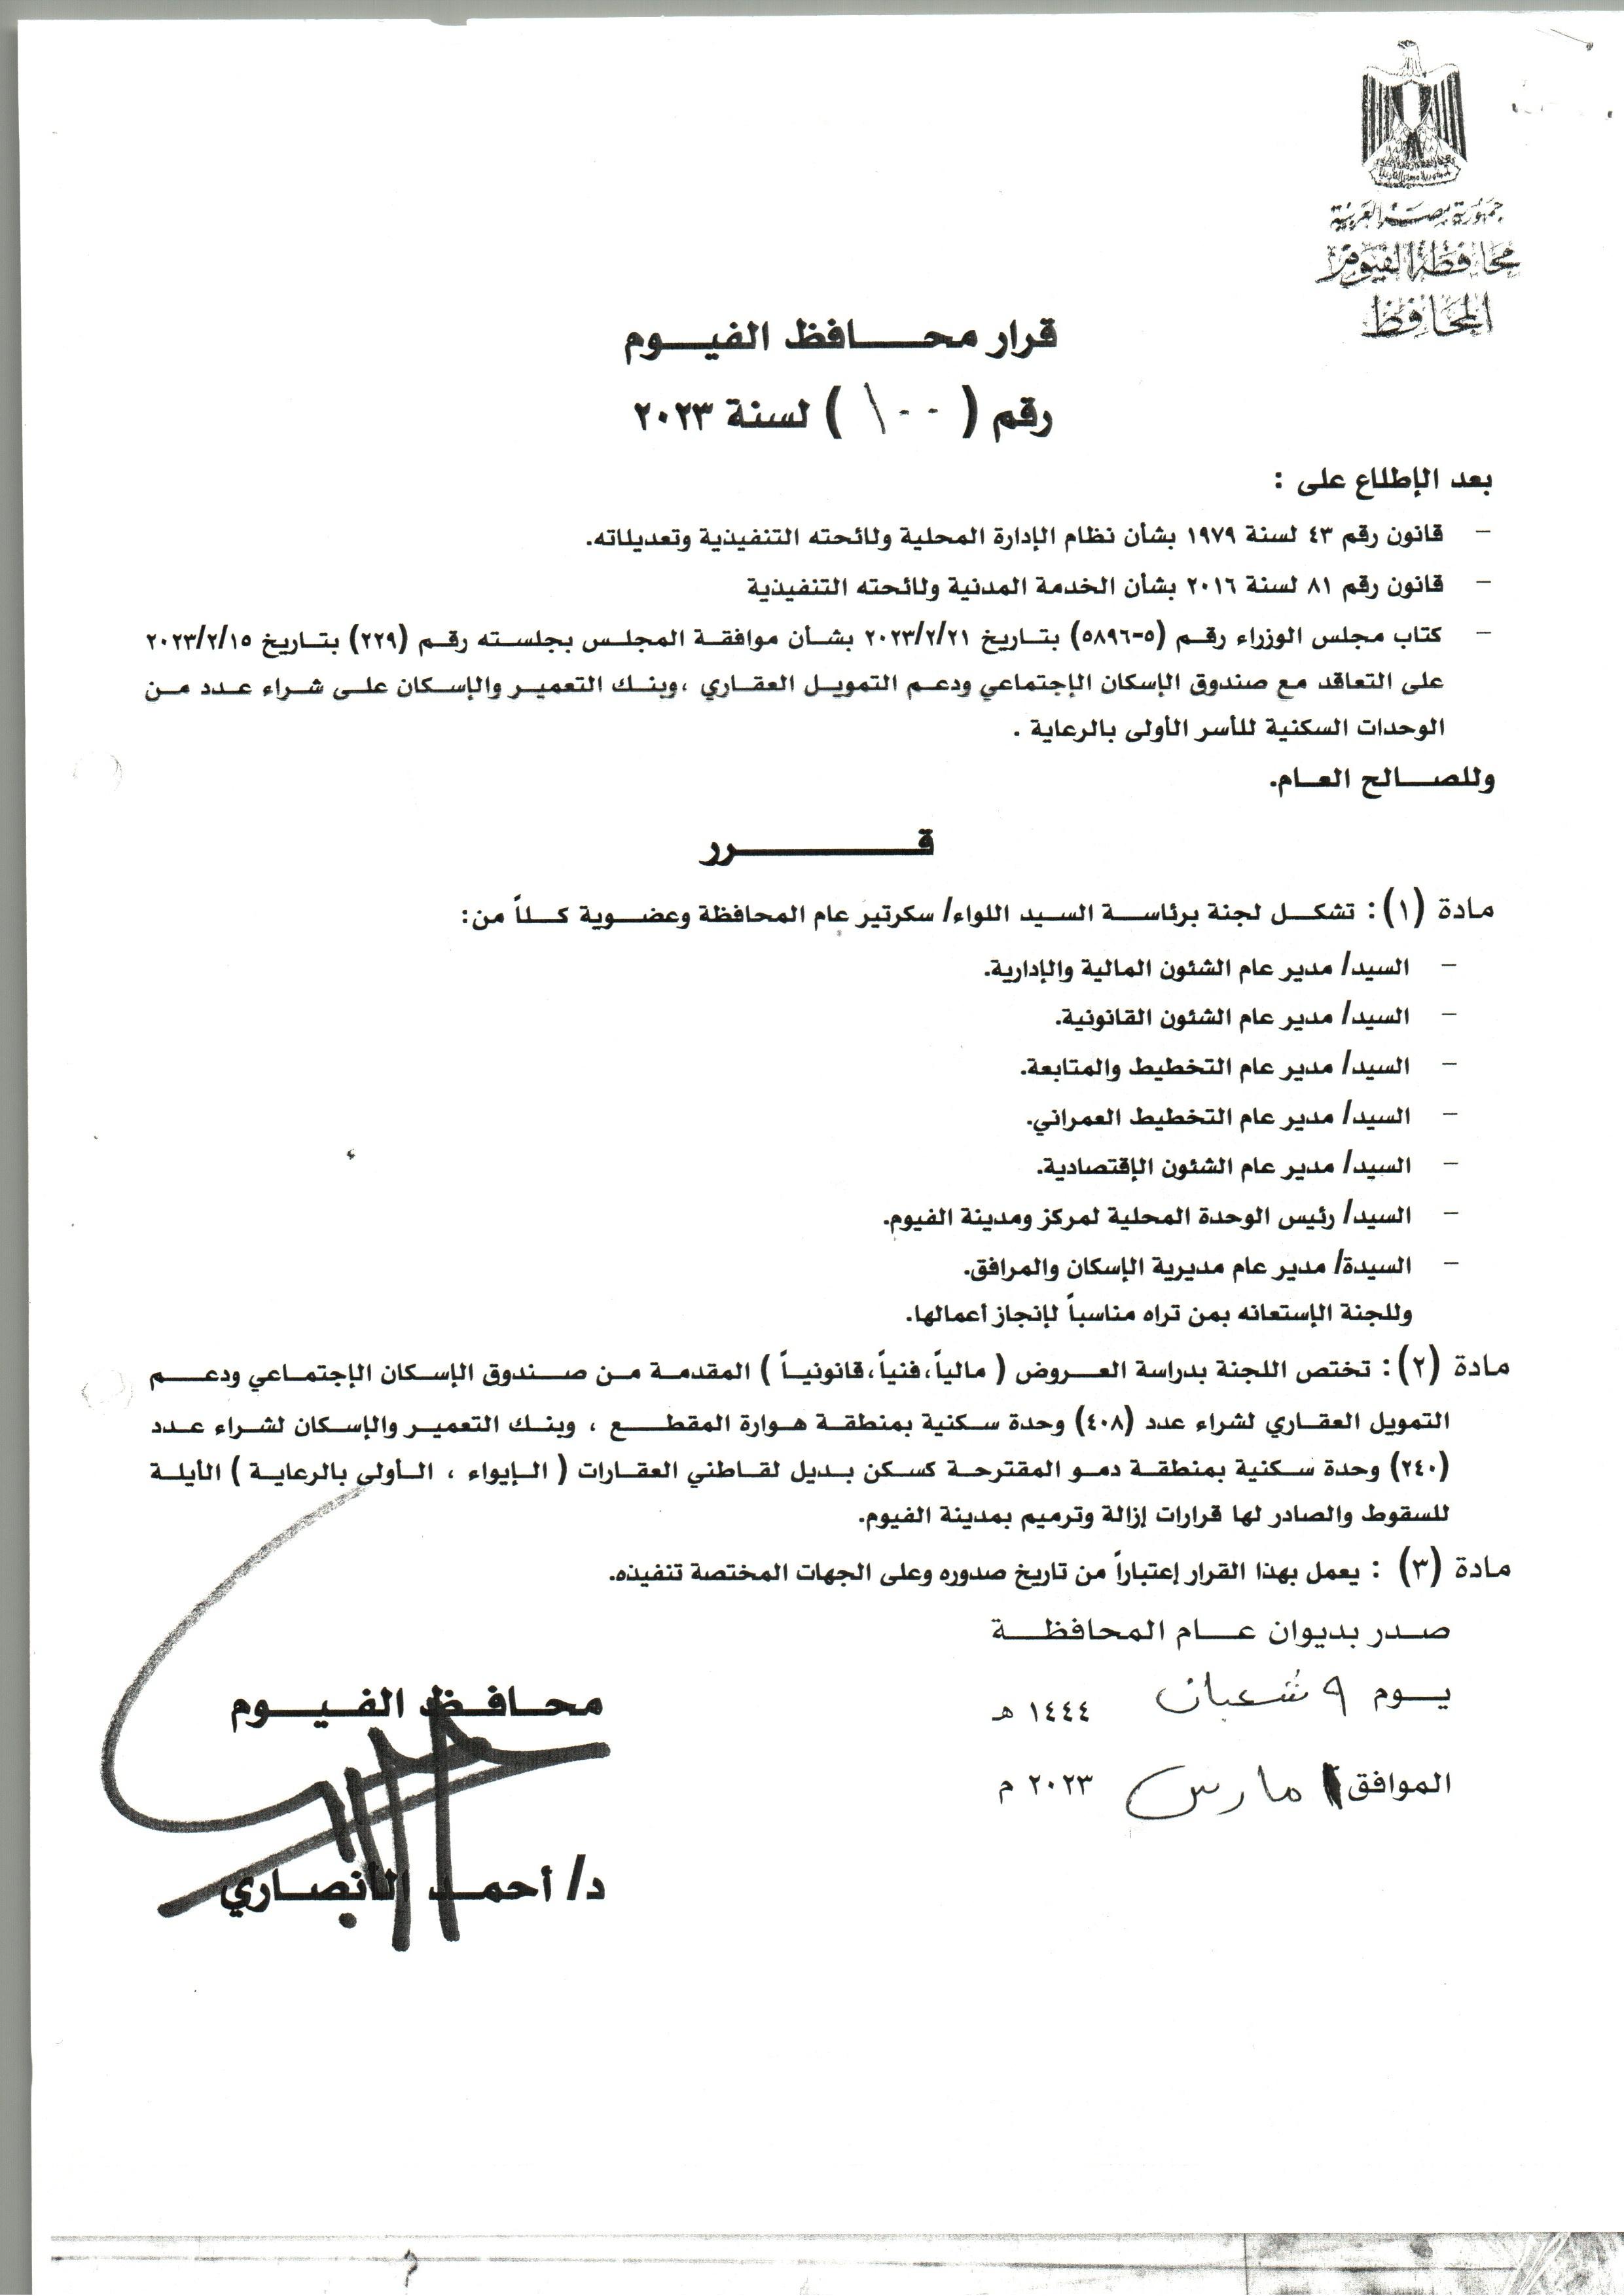 جمهورية مصر العربية
محافظة الفيوم
المحافظ
قرار محافظ الفيوم
رقم ( ١٠٠ ) لسنة ٢٠٢٣
بعد الإطلاع على :
- قانون رقم ٤٣ لسنة ١٩٧٩ بشأن نظام الإدارة المحلية ولائحته التنفيذية وتعديلاته.
- قانون رقم ٨١ لسنة ٢٠١٦ بشأن الخدمة المدنية ولائحته التنفيذية
- كتاب مجلس الوزراء رقم (٥-٥٨٩٦) بتاريخ ٢٠٢٣/٢/٢١ بشأن موافقة المجلس بجلسته رقم (٢٢٩) بتاريخ ٢٠٢٣/٢/١٥
على التعاقد مع صندوق الإسكان الإجتماعي ودعم التمويل العقاري ،وبنك التعمير والإسكان على شراء عدد من
الوحدات السكنية للأسر الأولى بالرعاية .
وللصالح العام.
قرر
مادة (١): تشكل لجنة برئاسة السيد اللواء/ سكرتير عام المحافظة وعضوية كلاً من:
- السيد/ مدير عام الشئون المالية والإدارية.
- السيد/ مدير عام الشئون القانونية.
- السيد/ مدير عام التخطيط والمتابعة.
- السيد/ مدير عام التخطيط العمراني.
- السيد/ مدير عام الشئون الإقتصادية.
- السيد/ رئيس الوحدة المحلية لمركز ومدينة الفيوم.
- السيدة/ مدير عام مديرية الإسكان والمرافق.
وللجنة الإستعانه بمن تراه مناسباً لإنجاز أعمالها.
مادة (٢): تختص اللجنة بدراسة العروض ( مالياً،فنياً،قانونياً ) المقدمة من صندوق الإسكان الإجتماعي ودعم
التمويل العقاري لشراء عدد (٤٠٨) وحدة سكنية بمنطقة هوارة المقطع ، وبنك التعمير والإسكان لشراء عدد
(٢٤٠) وحدة سكنية بمنطقة دمو المقترحة كسكن بديل لقاطني العقارات ( الإيواء ، الأولى بالرعاية ) الأيلة
للسقوط والصادر لها قرارات إزالة وترميم بمدينة الفيوم.
مادة (٣) : يعمل بهذا القرار إعتباراً من تاريخ صدوره وعلى الجهات المختصة تنفيذه.
صدر بديوان عام المحافظة
يوم ٩ شعبان ١٤٤٤ هـ
الموافق ١ مارس ٢٠٢٣ م
محافظ الفيوم
د/ أحمد الأنصاري